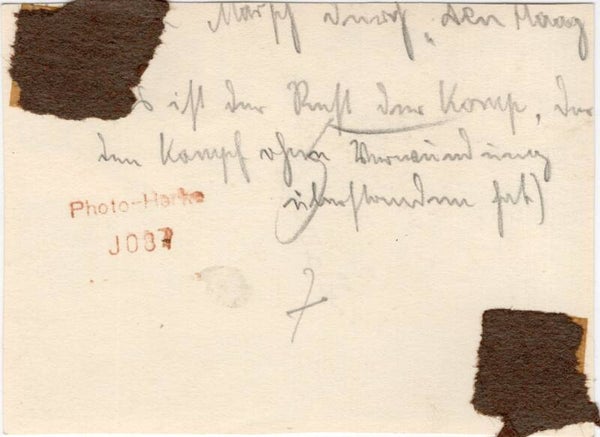 Marsch durch „den Haag
ist der Rest der Komp, der
den Kampf ohne Verwundung
überstanden hat)
Photo-Harke
J087
7